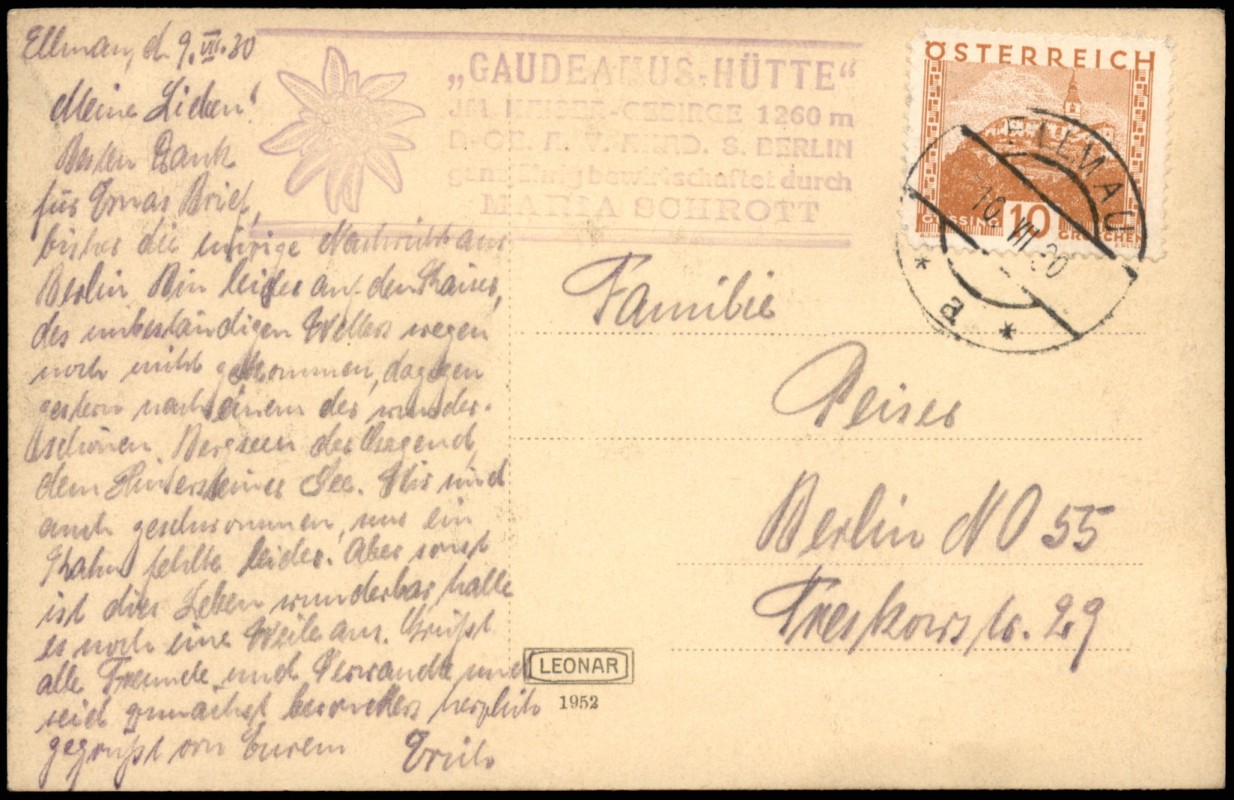 Ellmau, d. 9.VII.30
Meine Lieben!
Besten Dank
für Ernas Brief,
bisher die einzige Nachricht aus
Berlin. Bin leider auf den Kaiser,
des unbeständigen Wetters wegen
noch nicht gekommen, dagegen
gestern nach einem der wunder-
schönen Bergseen der Gegend,
dem Hintersteiner See. Wir sind
auch geschwommen, nur ein
Kahn fehlte leider. Aber sonst
ist dies Leben wunderbar, halte
es noch eine Weile aus. Grüßt
alle Freunde und Verwandte und
seid zunächst besonders herzlich
gegrüßt von Eurem Erich
„GAUDEAMUS-HÜTTE“
IM KAISER-GEBIRGE 1260 m
D.-OE. A. V. AKAD. S. BERLIN
ganzjährig bewirtschaftet durch
MARIA SCHROTT
ÖSTERREICH
GÜSSING 10 GROSCHEN
ELLMAU
10.VII.30
* a *
Familie
Peiser
Berlin NO 55
Treskowstr. 29
LEONAR
1952